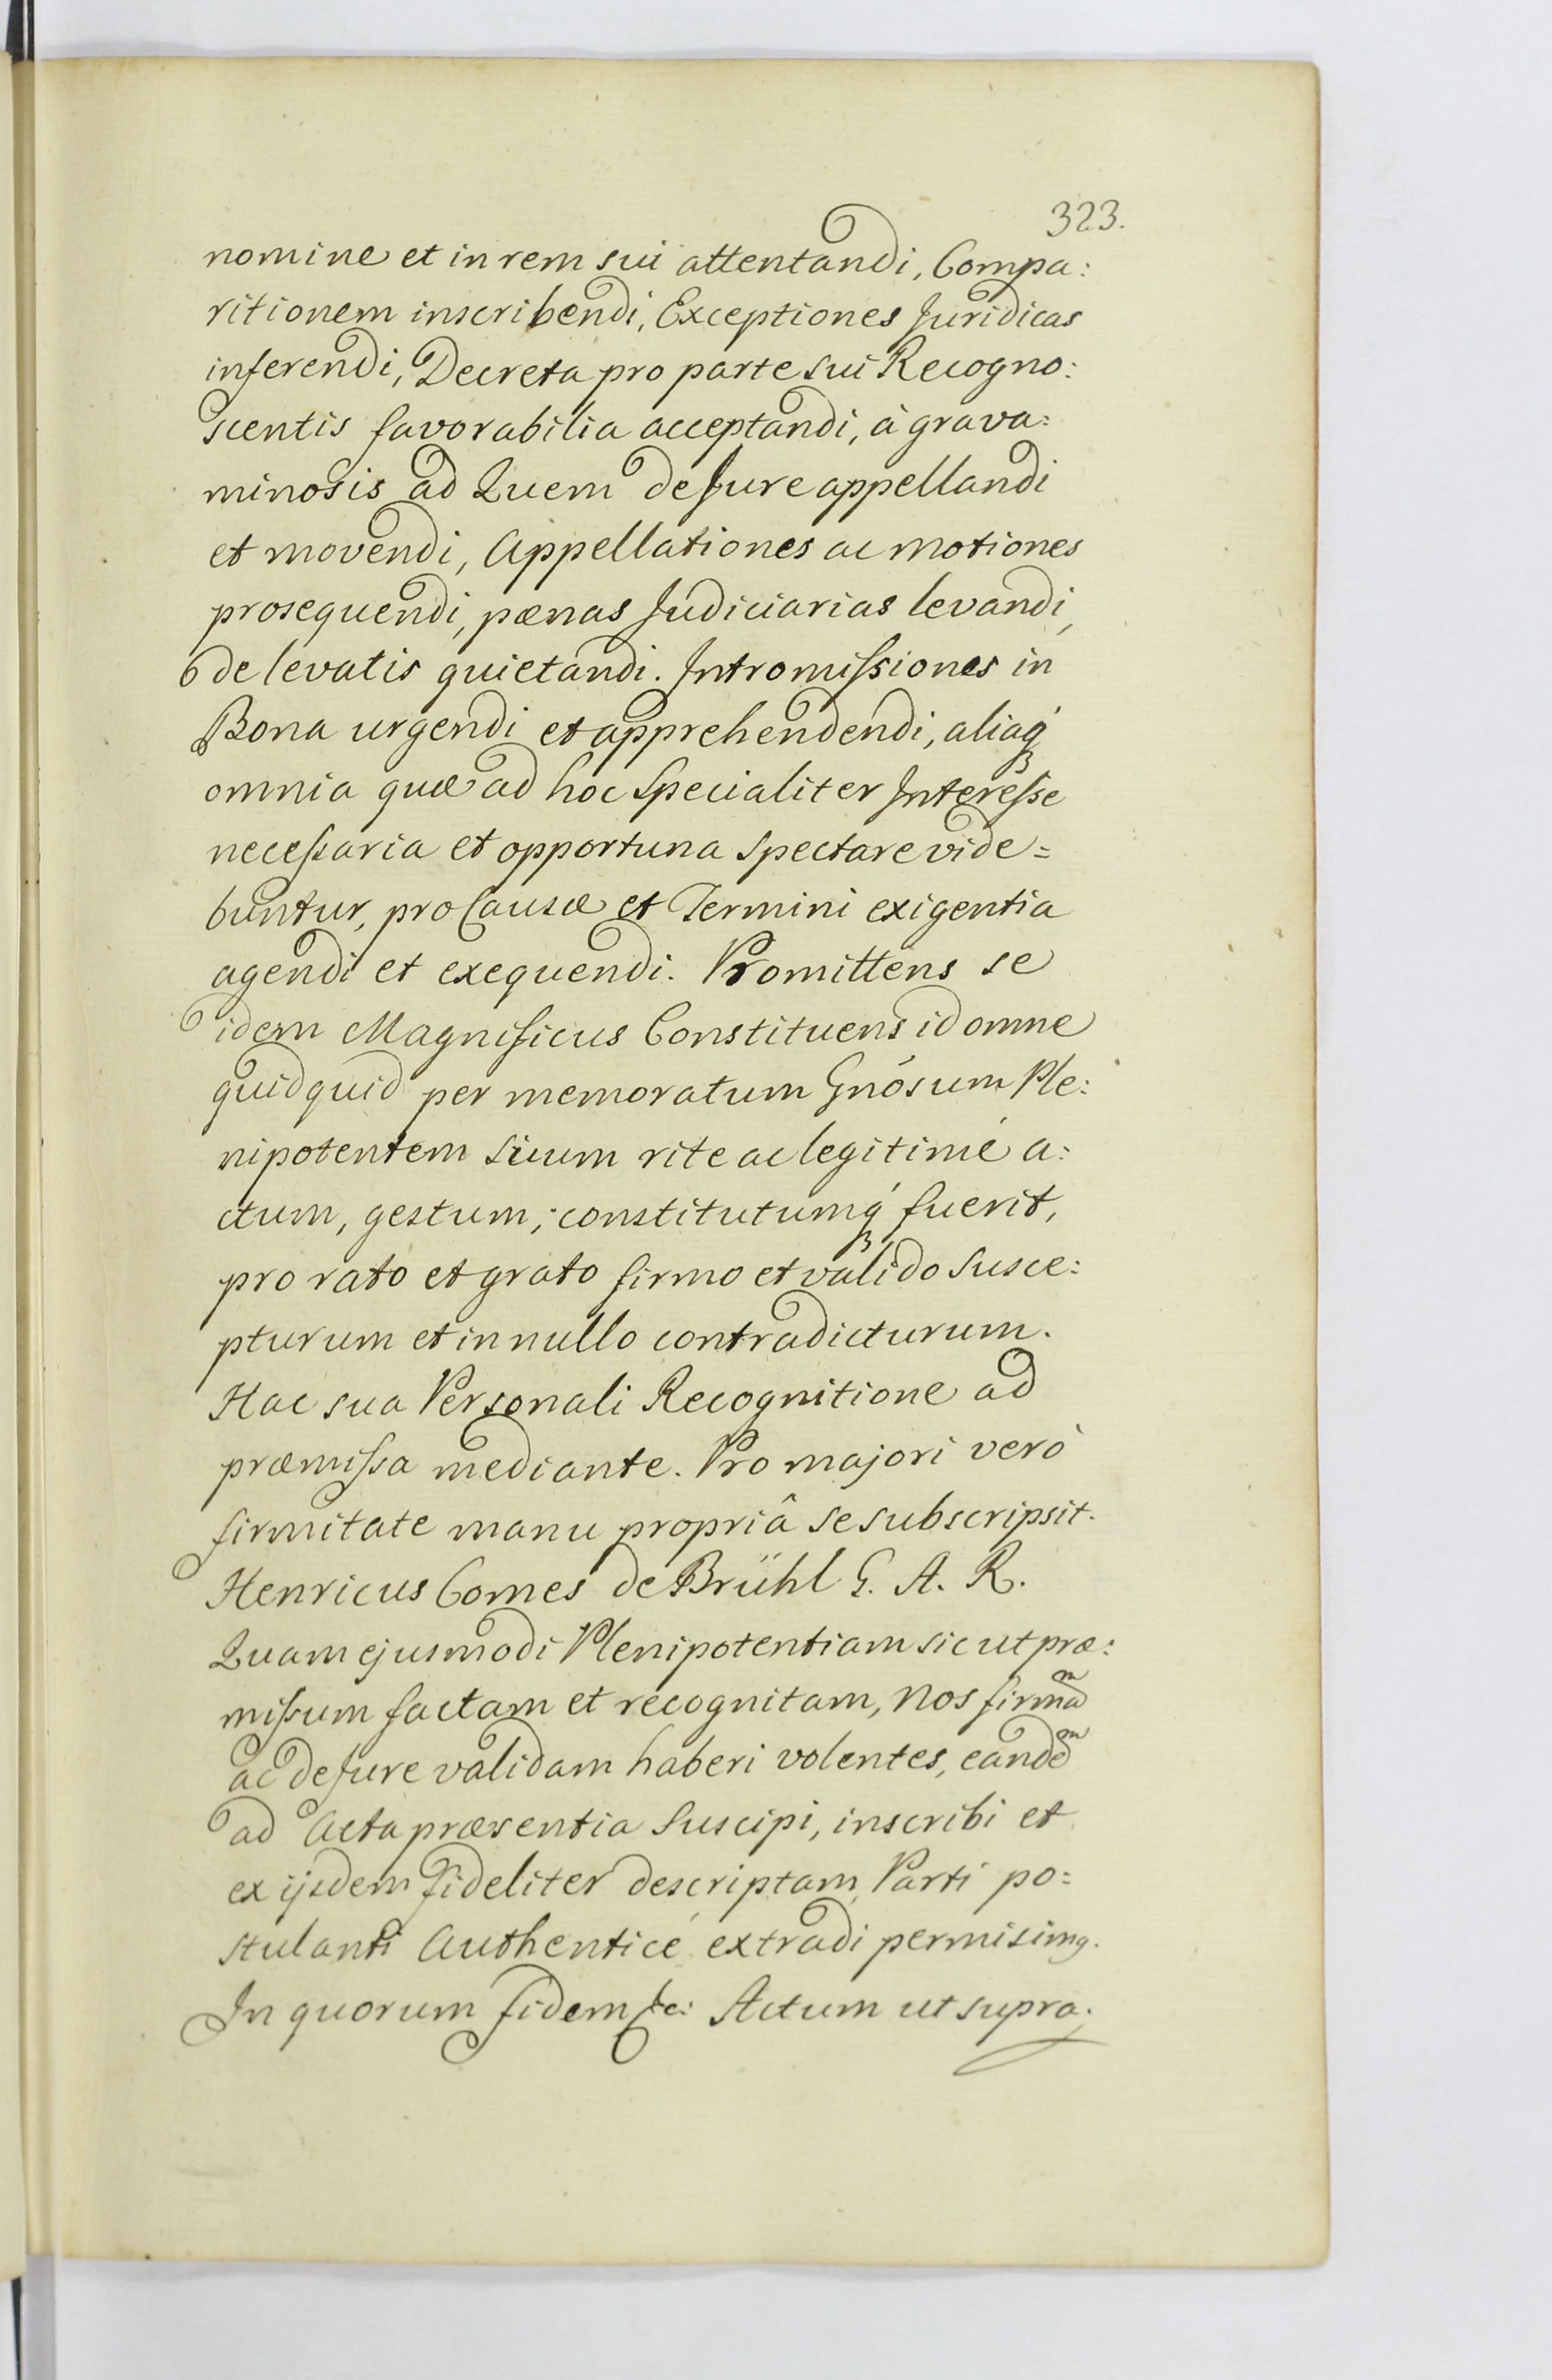 323.
nomine et in rem sui attentandi, Compa:
ritionem inscribendi, Exceptiones Juridicas
inferendi, Decreta pro parte sui Recogno:
scentis favorabilia acceptandi, à grava:
minosis ad Quem de Jure appellandi
et movendi, Appellationes ac motiones
prosequendi, pœnas Judiciarias levandi,
de levatis quietandi. Intromiſsiones in
Bona urgendi et apprehendendi, aliaq́ꝫ
omnia quæ ad hoc Specialiter Intereſse
neceſsaria et opportuna spectare vide=
buntur, pro Causæ et Termini exigentia
agendi et exequendi. Promittens se
idem Magnificus Constituens id omne
quidquid per memoratum Gnósum Ple:
nipotentem suum rite ac legitimé a:
ctum, gestum, constitutumq́ꝫ fuerit,
pro rato et grato firmo et valido Susce:
pturum et in nullo contradicturum.
Hac sua Personali Recognitione ad
præmiſsa mediante. Pro majori verò
firmitate manu propriâ se subscripsit.
Henricus Comes de Brühl G. A. R.
Quam ejusmodi Plenipotentiam sic ut præ:
miſsum factam et recognitam, Nos firmaᵐ
ac de Jure validam haberi volentes, eandeᵐ
ad Acta præsentia Suscipi, inscribi et
ex ijsdem fideliter descriptam Parti po=
stulanti Authenticé extradi permisimꝯ.
In quorum fidem &c: Actum ut supra.